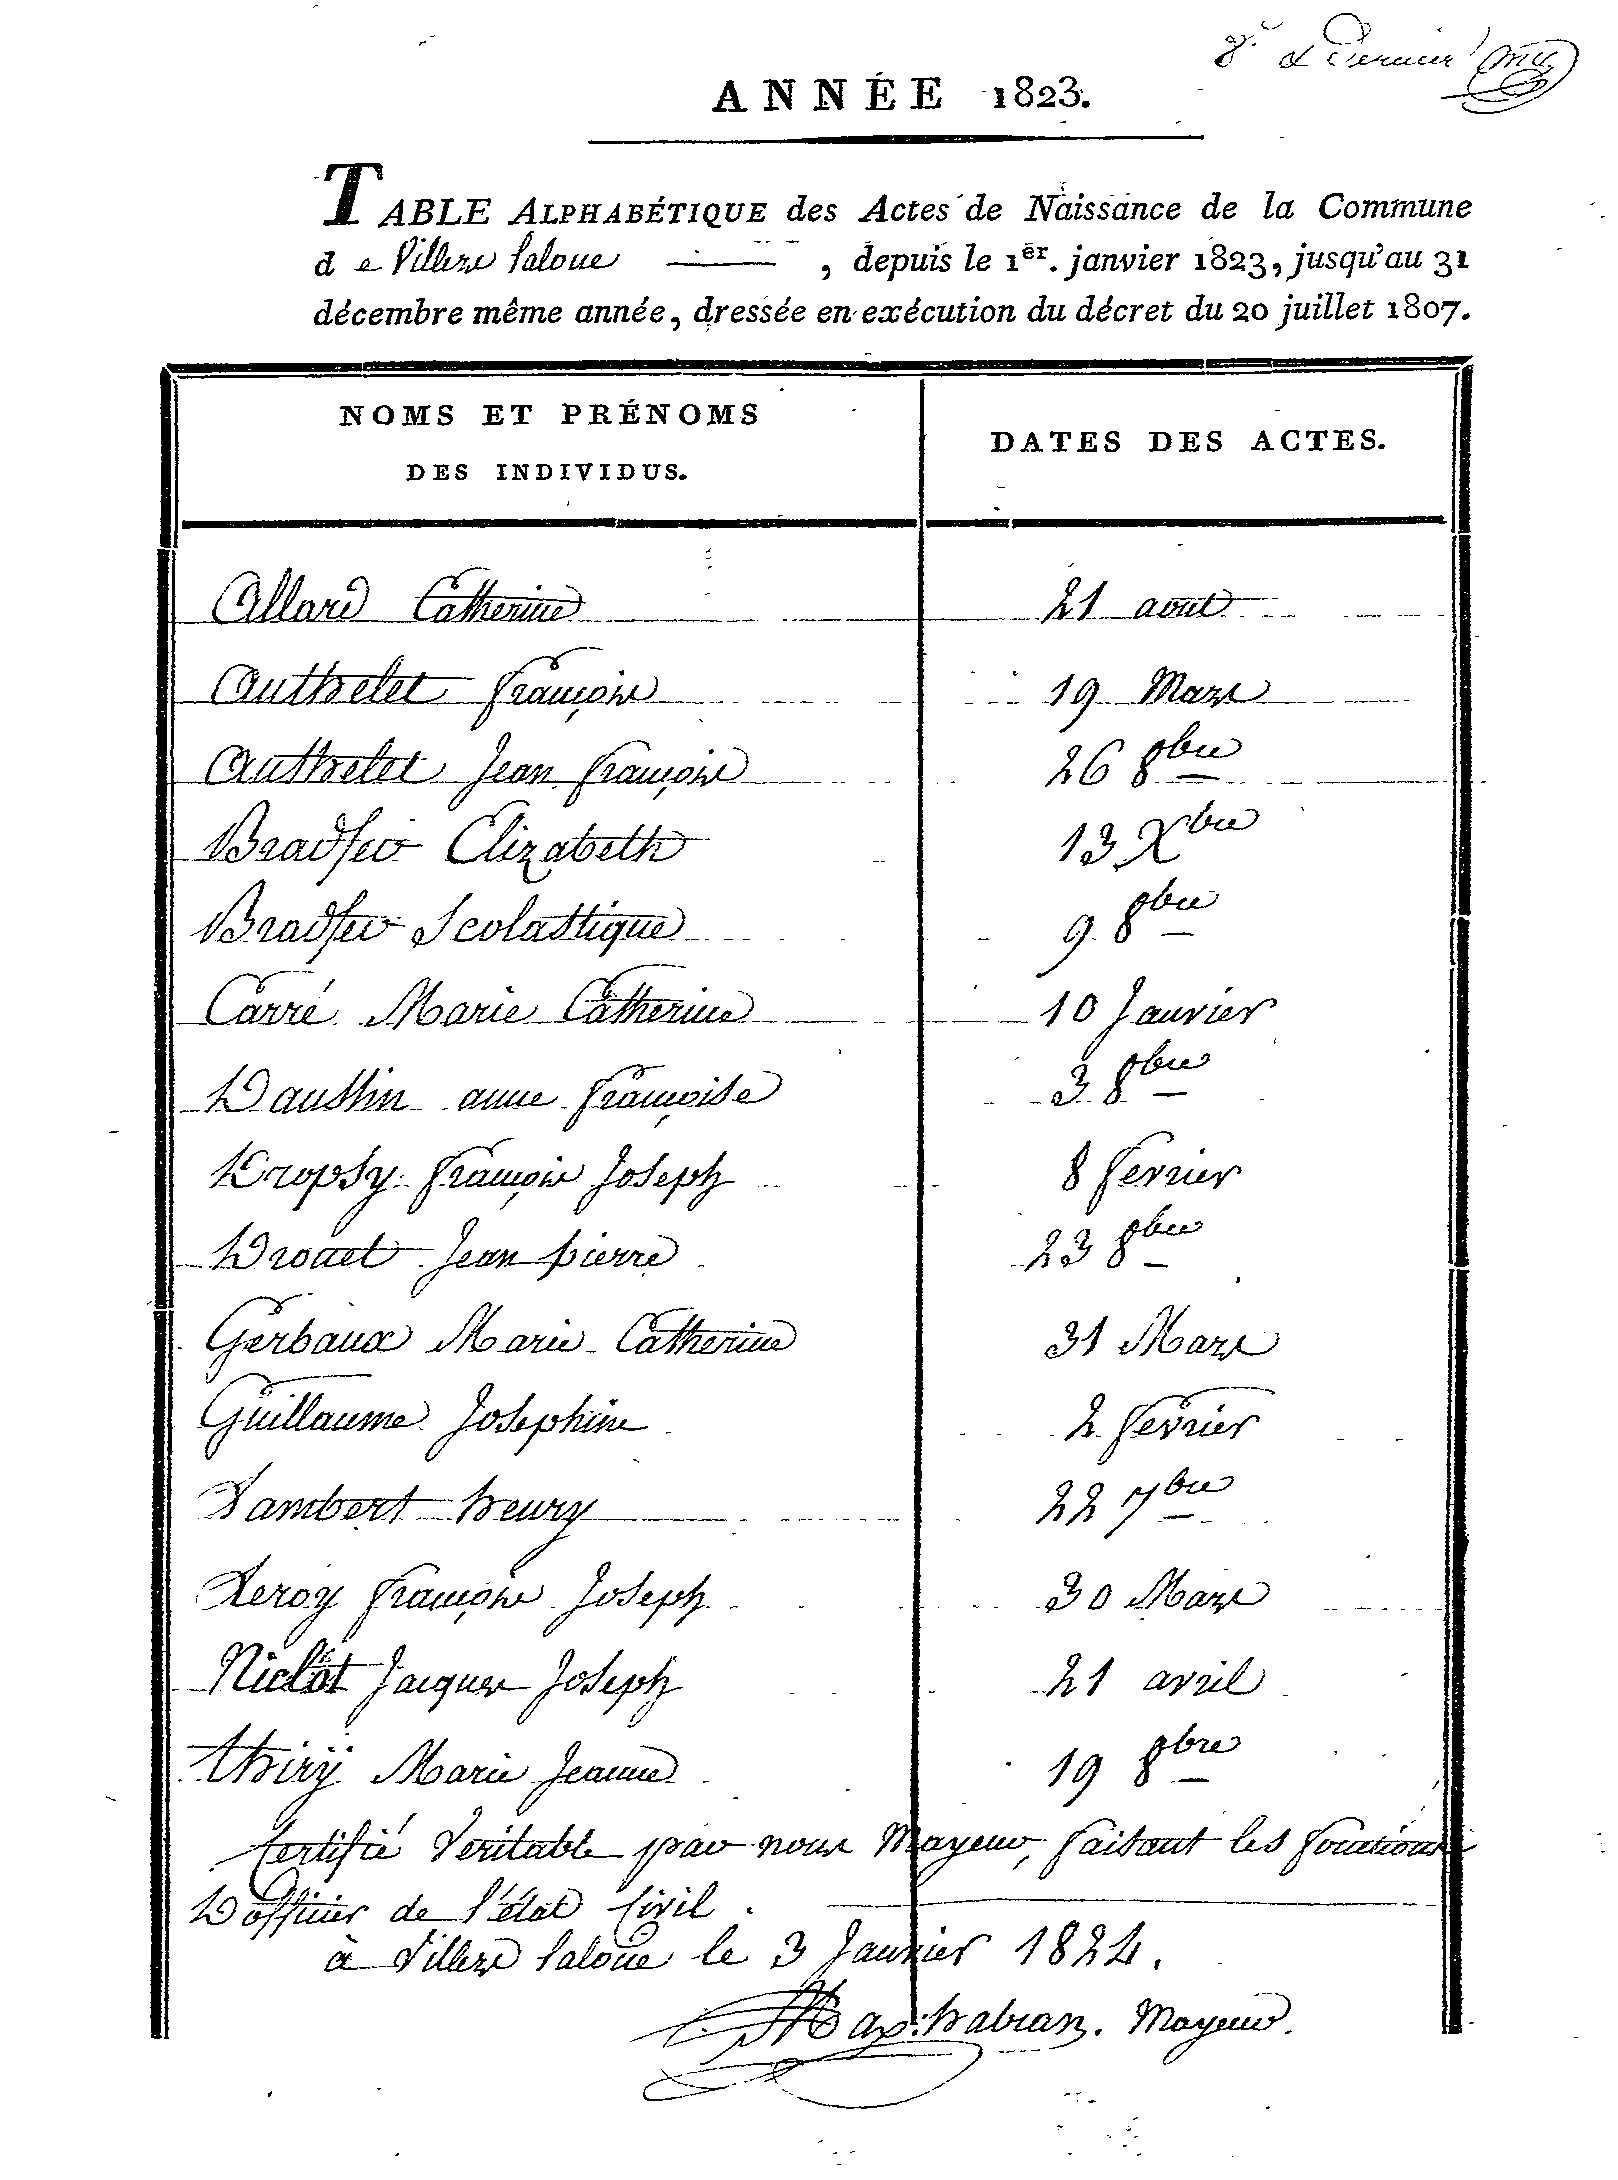 8e. & dernier
ANNÉE 1823.
TABLE ALPHABÉTIQUE des Actes de Naissance de la Commune
de Villers laloue, depuis le 1er. janvier 1823, jusqu'au 31
décembre même année, dressée en exécution du décret du 20 juillet 1807.
NOMS ET PRÉNOMS
DES INDIVIDUS.
DATES DES ACTES.
Allard Catherine 21 aout
Authelet françois 19 Mars
Authelet Jean françois 26 8bre
Bradfer Elizabeth 13 Xbre
Bradfer Scolastique 9 8bre
Carré Marie Catherine 10 Janvier
Daustin anne françoise 3 8bre
Dropsy françois Joseph 8 fevrier
Drouet Jean pierre 23 8bre
Gerbaux Marie Catherine 31 Mars
Guillaume Josephine 2 fevrier
Lambert henry 22 7bre
Leroy françois Joseph 30 Mars
Niclot Jacques Joseph 21 avril
thirÿ Marie Jeanne 19 8bre
Certifié Veritable par nous Mayeur, faisant les fonctions
D'officier de l'état Civil.
à Villers laloue le 3 Janvier 1824.
habran. Mayeur.